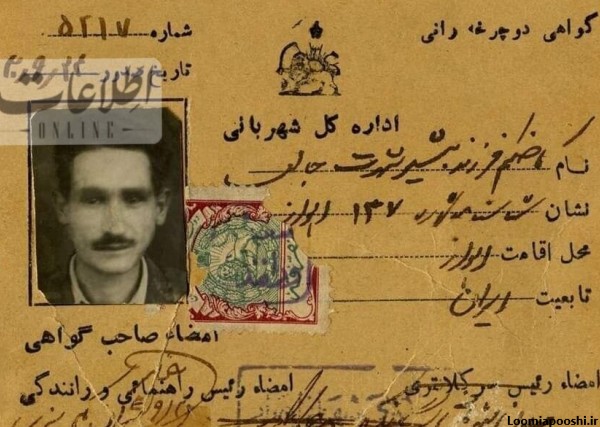 گواهی دوچرخه رانی
شماره ۵۲۱۷
تاریخ صدور
اطلاعات
ONLINE
اداره کل شهربانی
نام کاظم فرزند بشیر شهرت
نشان شناسنامه ۱۳۷ اهواز
محل اقامت اهواز
تابعیت ایران
امضاء صاحب گواهی
امضاء رئیس کلانتری
امضاء رئیس راهنمائی و رانندگی
Loomiapooshi.ir